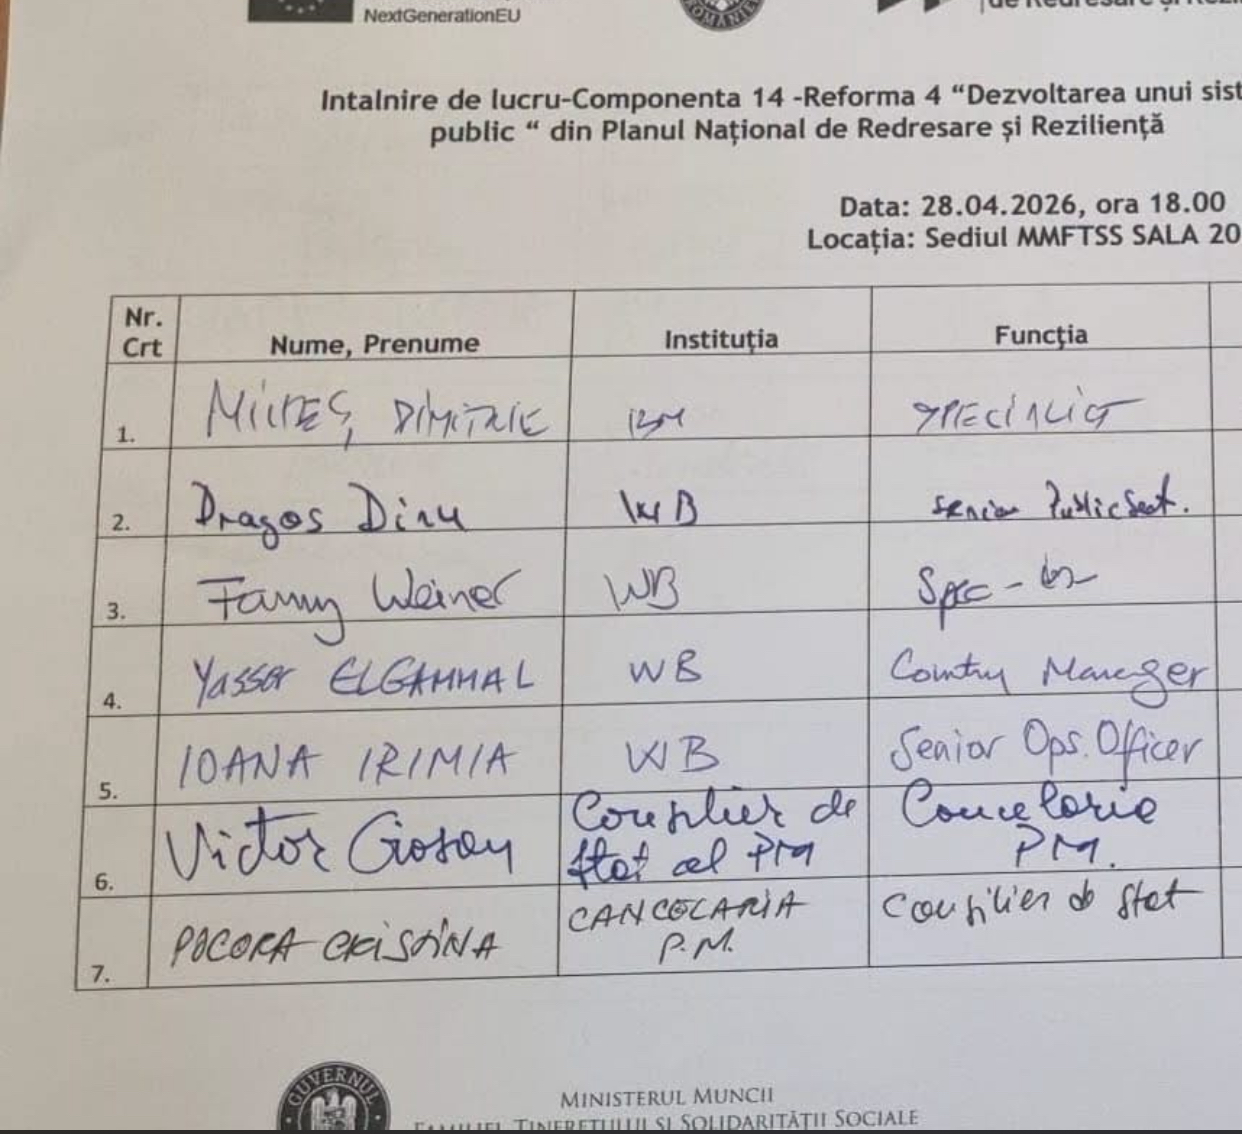 NextGenerationEU
ROMÂNIEI
Intalnire de lucru-Componenta 14 -Reforma 4 “Dezvoltarea unui sist
public “ din Planul Național de Redresare și Reziliență
Data: 28.04.2026, ora 18.00
Locația: Sediul MMFTSS SALA 20
Nr. Crt Nume, Prenume Instituția Funcția
1. DIMITRIE BM SPECIALIST
2. Dragos Dinu WB Senior Public Sect.
3. Fanny Weiner WB Spec -
4. Yasser ELGAMMAL WB Country Manager
5. IOANA IRIMIA WB Senior Ops. Officer
6. Victor Giosan Consilier de stat al PM Cancelaria PM.
7. POCORA CRISTINA CANCELARIA P.M. Consilier de stat
GUVERNUL
MINISTERUL MUNCII
FAMILIEI TINERETULUI ȘI SOLIDARITĂȚII SOCIALE